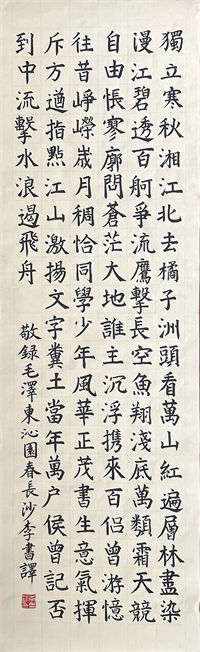 獨立寒秋湘江北去橘子洲頭看萬山紅遍層林盡染
漫江碧透百舸爭流鷹擊長空魚翔淺底萬類霜天競
自由悵寥廓問蒼茫大地誰主沉浮携來百侶曾游憶
往昔崢嶸歲月稠恰同學少年風華正茂書生意氣揮
斥方遒指點江山激揚文字糞土當年萬户侯曾記否
到中流擊水浪遏飛舟
敬録毛澤東沁園春長沙李書譯